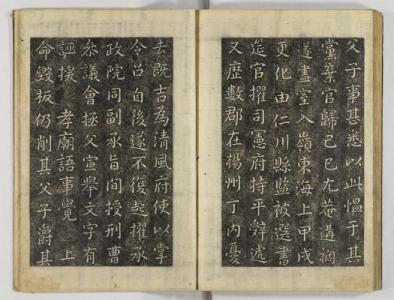 父子事甚悉以此慍于其
黨棄官歸己巳尤菴遘禍
遂盡室入嶺東海上甲戌
更化由仁川縣監被選書
筵官擢司憲府持平辭述
又歷數郡在楊州丁內憂
去既吉為清風府使以掌
令召自後遂不復起擢承
政院同副承旨間授刑曹
參議會拯父宣擧文字有
誣捱 孝廟語事覺 上
命毀板仍削其父子爵其